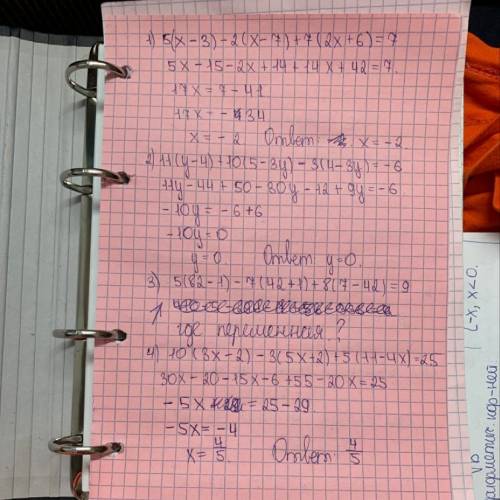 1) 5(x-3)-2(x-7)+7(2x+6)=7
5x-15-2x+14+14x+42=7.
17x=7-41
17x=-34
x=-2 Ответ: x=-2.
2) 11(y-4)+10(5-3y)-3(4-3y)=-6
11y-44+50-30y-12+9y=-6
-10y=-6+6
-10y=0
y=0. Ответ: y=0.
3) 5(82-1)-7(42+1)+8(7-42)=9
где переменная?
4) 10(3x-2)-3(5x+2)+5(11-4x)=25
30x-20-15x-6+55-20x=25
-5x=25-29
-5x=-4
x=4/5 Ответ: 4/5
(-x, x<0.